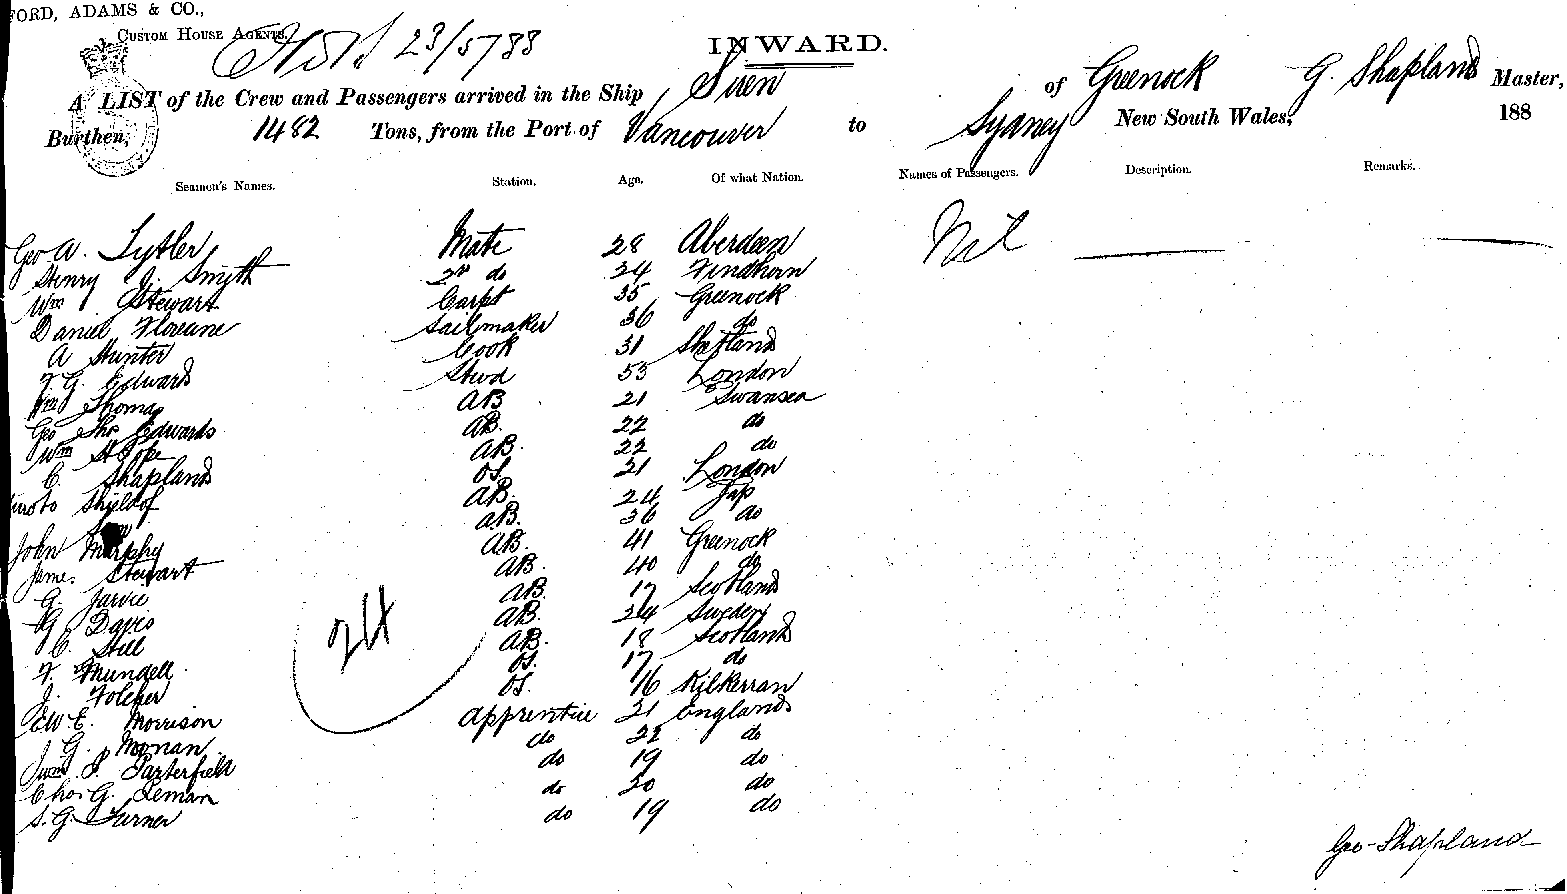 FORD, ADAMS & CO.,
CUSTOM HOUSE AGENTS.
23/5/88
INWARD.
A LIST of the Crew and Passengers arrived in the Ship Siren of Greenock G. Shapland Master,
Burthen, 1482 Tons, from the Port of Vancouver to Sydney New South Wales, 188
Seamen's Names. Station. Age. Of what Nation. Names of Passengers. Description. Remarks.
Geo A. Tytler Mate 28 Aberdeen Nil
Henry J. Smyth 2nd do 24 Findhorn
Wm Stewart Carpt 35 Greenock
Daniel Floreane Sailmaker 36 do
A Hunter Cook 31 Shetland
F. G. Edward Stwd 53 London
Wm Thomas AB 21 Swansea
Geo Thos Edwards AB. 22 do
Wm H Pope AB. 22 do
C. Shapland OS. 21 London
Shieldof AB. 24 Jap
Sam AB. 36 do
John Murphy AB. 41 Greenock
James Stewart AB. 40 do
G. Jarvie AB. 17 Scotland
G. Davis AB. 24 Sweden
C. Still AB. 18 Scotland
F. Mundell OS. 17 do
J. Folcher OS. 16 Kilkerran
E.W.E. Morrison Apprentice 21 England
J. G. Monan do 22 do
Wm P. Parterfield do 19 do
Chas. G. Leman do 20 do
S. G. Turner do 19 do
24
Geo Shapland